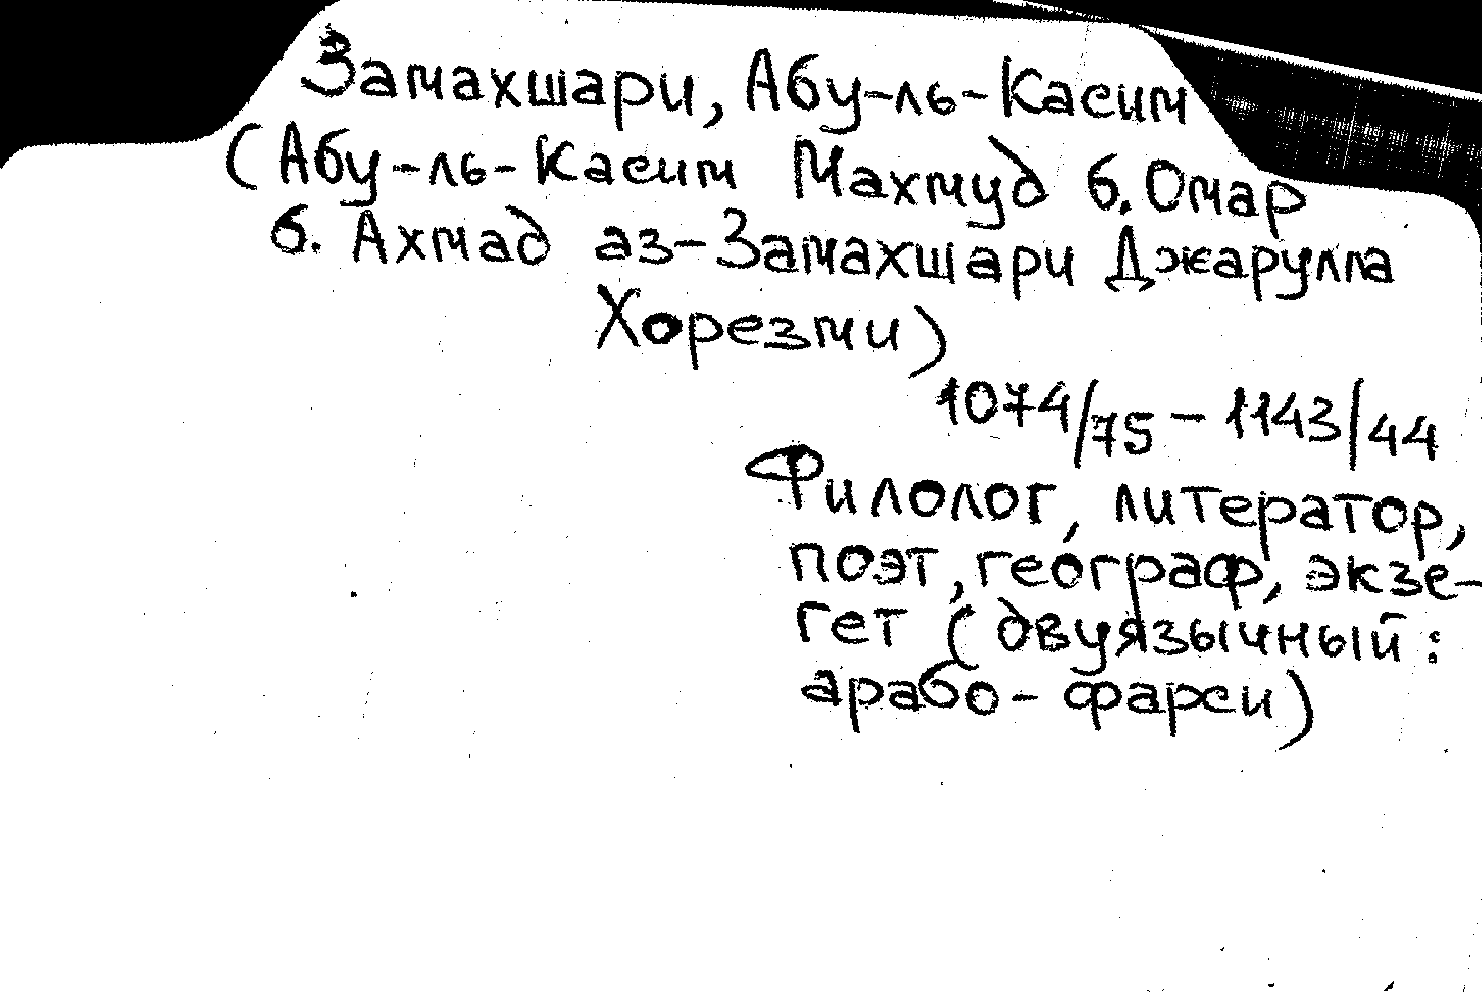 Замахшари, Абу-ль-Касим
(Абу-ль-Касим Махмуд б. Омар
б. Ахмад аз-Замахшари Джарулла
Хорезми)
1074/75 - 1143/44
Филолог, литератор,
поэт, географ, экзе-
гет (двуязычный:
арабо-фарси)